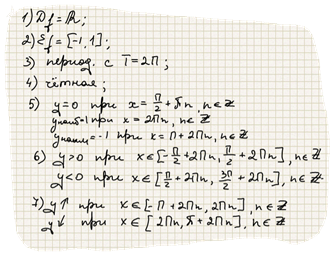 1) D_f = ℝ;
2) E_f = [-1, 1];
3) период. с T = 2π;
4) чётная;
5) y = 0 при x = π/2 + πn, n ∈ ℤ
yнаиб = 1 при x = 2πn, n ∈ ℤ
yнаим = -1 при x = π + 2πn, n ∈ ℤ
6) y > 0 при x ∈ [-π/2 + 2πn, π/2 + 2πn], n ∈ ℤ
y < 0 при x ∈ [π/2 + 2πn, 3π/2 + 2πn], n ∈ ℤ
7) y ↑ при x ∈ [-π + 2πn, 2πn], n ∈ ℤ
y ↓ при x ∈ [2πn, π + 2πn], n ∈ ℤ